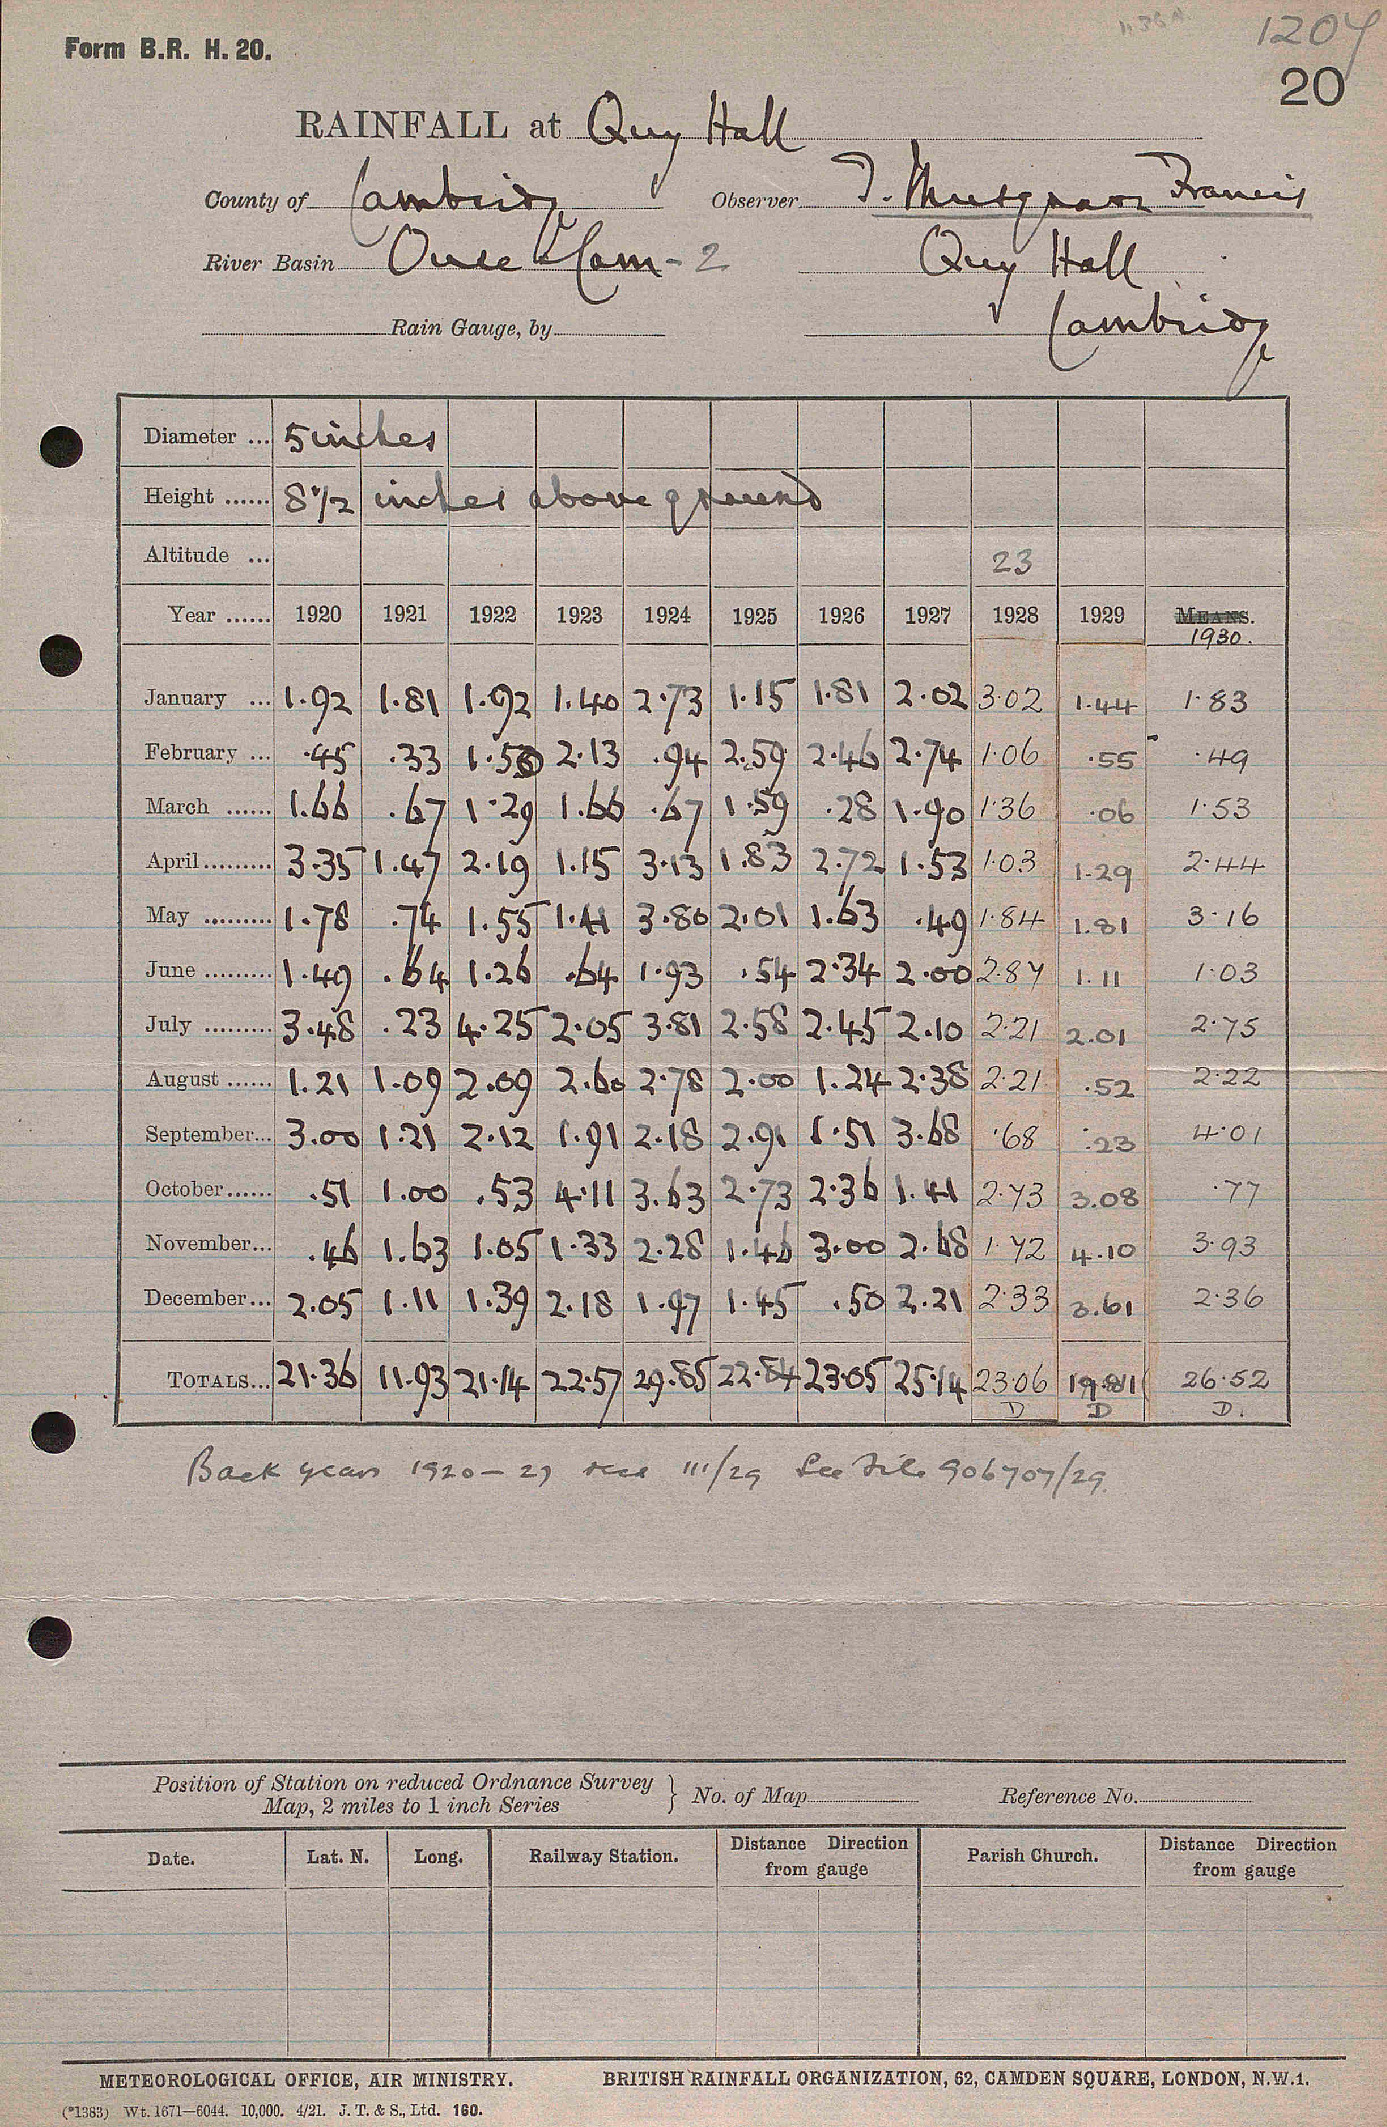 Form B.R. H. 20.
1204
20
RAINFALL at Quy Hall
County of Cambridge Observer J. Musgrave Francis
River Basin Ouse - Cam - 2 Quy Hall
Rain Gauge, by Cambridge
Diameter ... 5 inches
Height ...... 8 1/2 inches above ground
Altitude ... 23
Year ...... 1920 1921 1922 1923 1924 1925 1926 1927 1928 1929 MEANS.
1930.
January ... 1.92 1.81 1.92 1.40 2.73 1.15 1.81 2.02 3.02 1.44 1.83
February ... .45 .33 1.50 2.13 .94 2.59 2.46 2.74 1.06 .55 .49
March ...... 1.66 .67 1.29 1.66 .67 1.59 .28 1.90 1.36 .06 1.53
April ......... 3.35 1.47 2.19 1.15 3.13 1.83 2.72 1.53 1.03 1.29 2.44
May ......... 1.78 .74 1.55 1.41 3.80 2.01 1.63 .49 1.84 1.81 3.16
June ......... 1.49 .64 1.26 .64 1.93 .54 2.34 2.00 2.87 1.11 1.03
July ......... 3.48 .23 4.25 2.05 3.81 2.58 2.45 2.10 2.21 2.01 2.75
August ...... 1.21 1.09 2.09 2.60 2.78 2.00 1.24 2.38 2.21 .52 2.22
September... 3.00 1.21 2.12 1.91 2.18 2.91 1.51 3.68 .68 .23 4.01
October...... .51 1.00 .53 4.11 3.63 2.73 2.36 1.41 2.73 3.08 .77
November... .46 1.63 1.05 1.33 2.28 1.46 3.00 2.68 1.72 4.10 3.93
December... 2.05 1.11 1.39 2.18 1.97 1.45 .50 2.21 2.33 3.61 2.36
TOTALS... 21.36 11.93 21.14 22.57 29.85 22.84 23.05 25.14 23.06 19.81 26.52
D D D.
Back years 1920-29 recd 111/29 See File 906707/29.
Position of Station on reduced Ordnance Survey Map, 2 miles to 1 inch Series } No. of Map Reference No.
Date. Lat. N. Long. Railway Station. Distance Direction from gauge Parish Church. Distance Direction from gauge
METEOROLOGICAL OFFICE, AIR MINISTRY. BRITISH RAINFALL ORGANIZATION, 62, CAMDEN SQUARE, LONDON, N.W.1.
(*1383) Wt. 1671—6044. 10,000. 4/21. J. T. & S., Ltd. 160.